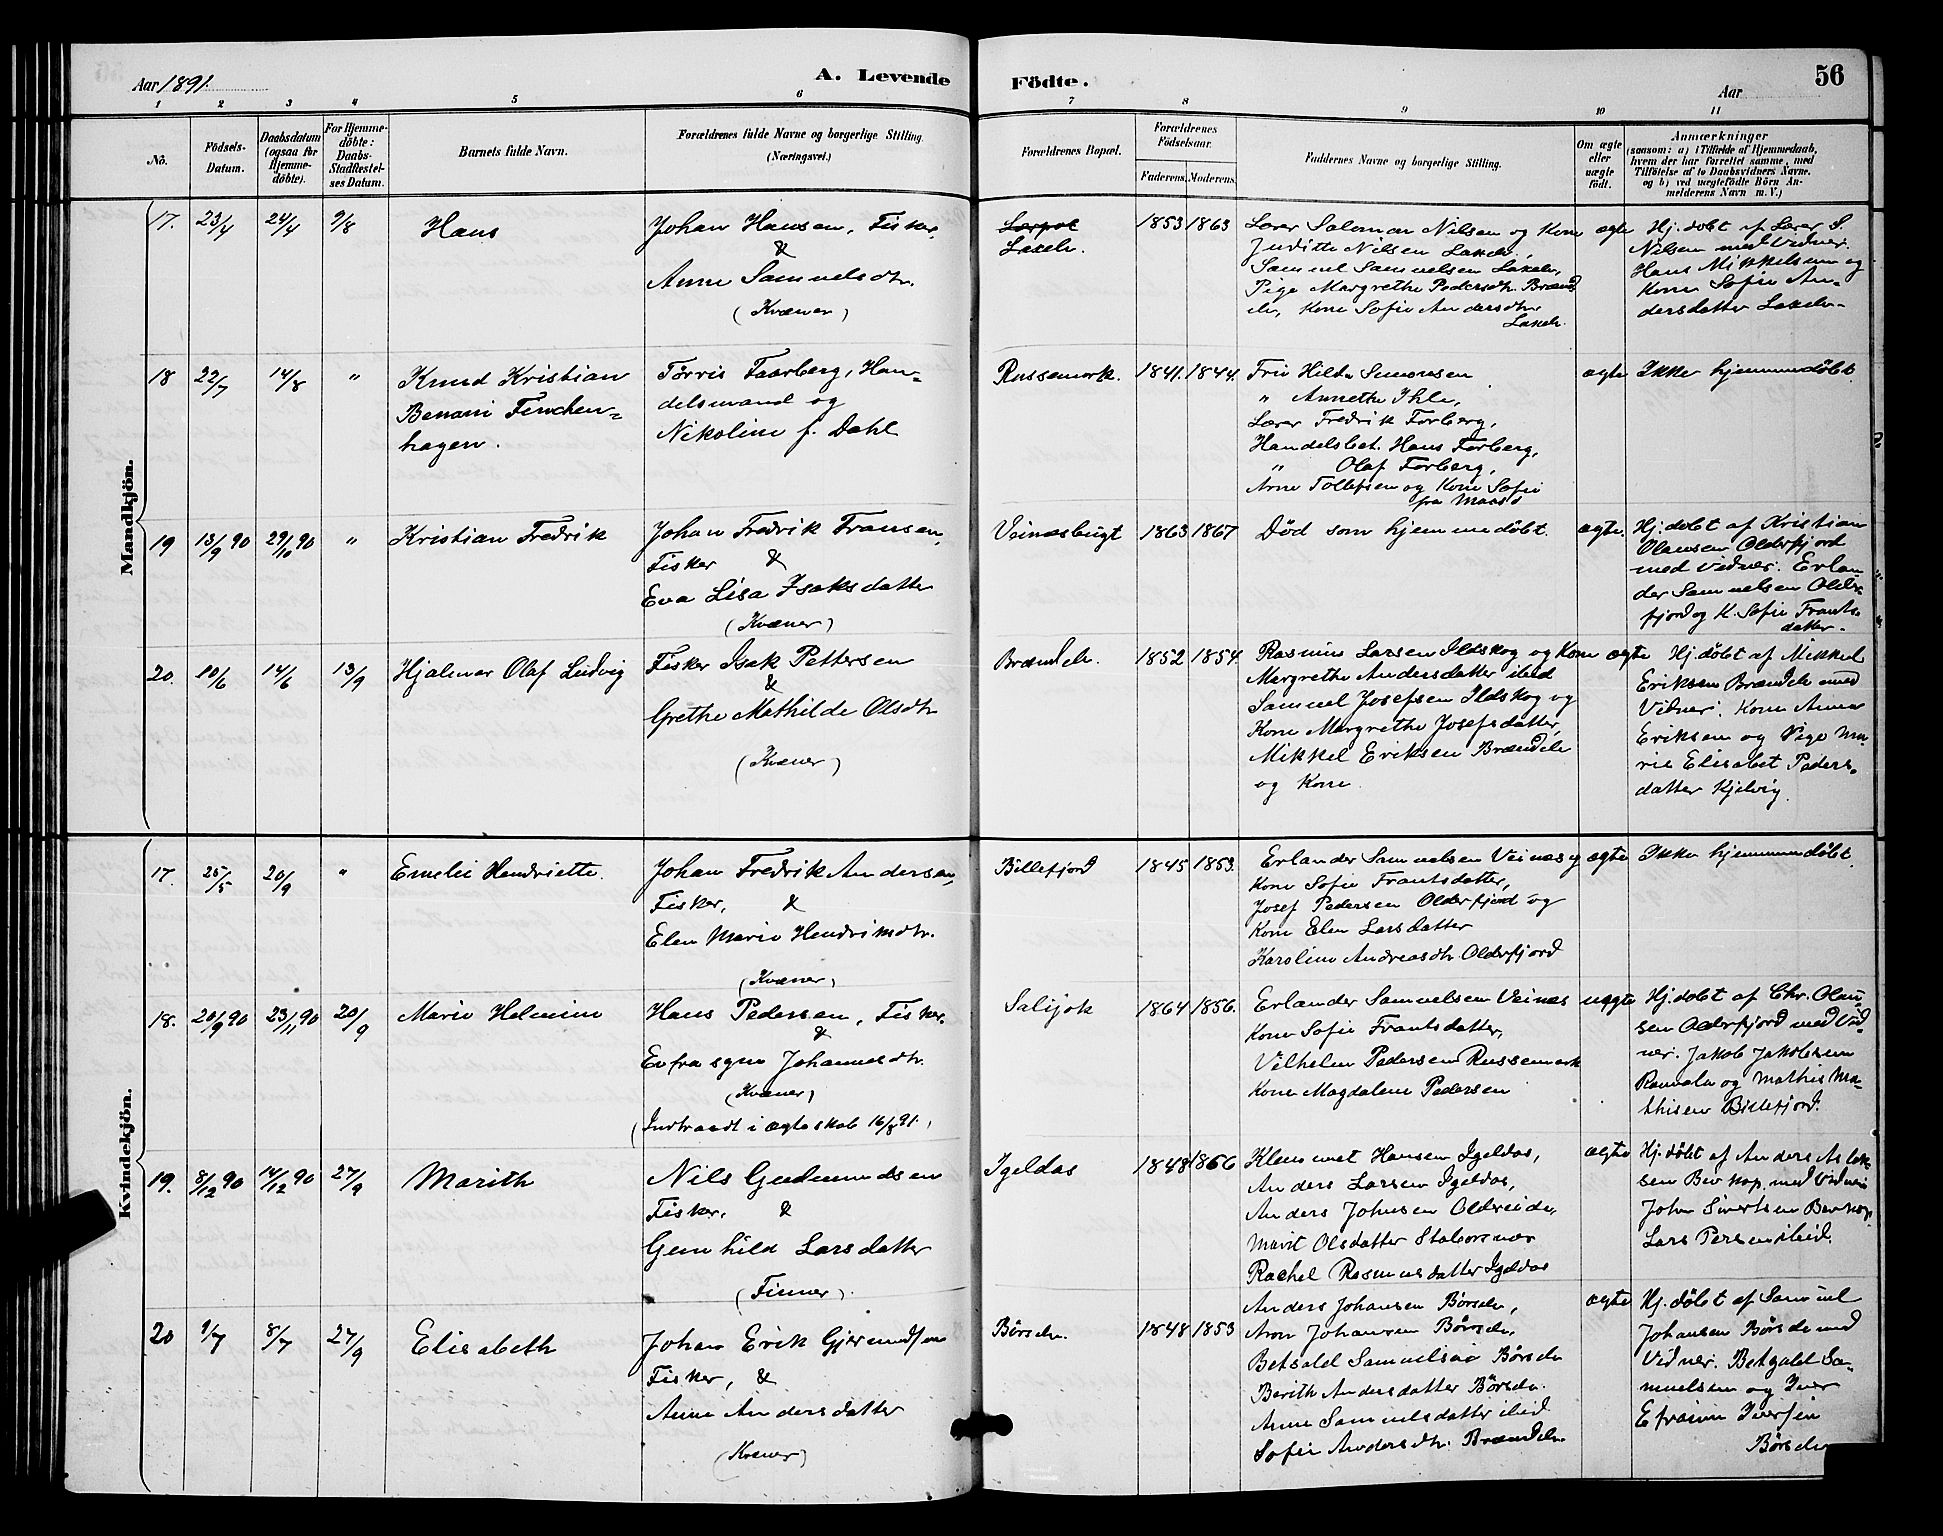 Aar 1891.
A. Levende
Födte.
Aar
56
1
2
3
4
5
6
7
8
9
10
11
No.
Födsels-
Datum.
Daabsdatum
(ogsaa for
Hjemme-
döbte).
For Hjemme-
döbte:
Daabs-
Stadfæstel-
ses Datum.
Barnets fulde Navn.
Forældrenes fulde Navne og borgerlige Stilling.
(Næringsvei.)
Forældrenes Bopæl.
Forældrenes
Födselsaar.
Faderens.
Moderens.
Faddernes Navne og borgerlige Stilling.
Om ægte
eller
uægte
födt.
Anmærkninger
(saasom: a) i Tilfælde af Hjemmedaab,
hvem der har forrettet samme, med
Tilföielse af to Daabsvidners Navne,
og b) ved uægtefödte Börn An-
melderens Navn m. V.)
Mandkjön.
17.
23/4
24/4
9/8
Hans
Johan Hansen, Fisker,
&
Anne Samuelsdtr.
(Kvæner)
Laxelv.
1853
1863
Lærer Salomon Nilsen og Kone
Juditte Nilsen Lakselv,
Samuel Samuelsen Lakselv,
Pige Margrethe Pedersdtr. Brænd
elv, Kone Sofie Andersdtr
Lakselv.
ægte
Hj. døbt af Lærer S.
Nilsen med Vidner.
Hans Mikkelsen og
Kone Sofie An-
dersdatter Lakselv.
18
22/7
14/8
"
Knud Kristian
Benoni Finchen-
hagen.
Tørris Faarberg, Han-
delsmand og
Nikoline f. Dahl
Russemark.
1841.
1844.
Fru Hilda Simonsen
" Annethe Ihle,
Lærer Fredrik Forberg,
Handelsbet. Hans Forberg,
" Olaf Forberg,
Arne Tollefsen og Kone Sofie
fra Maasø
ægte
Ikke hjemmedøbt.
19
13/9 90
29/10 90
"
Kristian Fredrik
Johan Fredrik Fransen,
Fisker &
Eva Lisa Isaksdatter
(Kvæner)
Veinæsbugt
1863
1867
Død som hjemmedøbt.
ægte.
Hj. døbt af Kristian
Olausen Olderfjord
med Vidner. Erlan-
der Samuelsen Older-
fjord og K. Sofie Frants-
datter.
20.
10/6
14/6
13/9
Hjalmar Olaf Ludvig
Fisker Isak Pettersen
&
Grethe Mathilde Olsdtr
(Kvæner)
Brændelv.
1852
1854.
Rasmus Larsen Ildskog og Kone
Margrethe Andersdatter ibid
Samuel Josefsen Ildskog og
Kone Margrethe Josefsdatter,
Mikkel Eriksen Brændelv
og Kone.
ægte
Hj. døbt af Mikkel
Eriksen Brændelv med
Vidner. Kone Anna
Eriksen og Pige Ma-
rie Elisabet Peders-
datter Kjelvig.
Kvindekjön.
17.
25/5
20/9
"
Emelie Hendriette.
Johan Fredrik Andersen,
Fisker, &
Elen Marie Hendriksdtr.
(Kvæner)
Billefjord
1845
1853.
Erlander Samuelsen Veinæs og
Kone Sofie Frantsdatter,
Josef Pedersen Olderfjord og
Kone Elen Larsdatter
Karoline Andreasdtr. Olderfjord
ægte
Ikke hjemmedøbt.
18.
20/9 90
23/11 90
20/9
Marie Helmine
Hans Pedersen, Fisker.
&
Eufrasyne Johannesdtr.
(Kvæner)
(Indtraadt i ægteskab 16/8 91.)
Salijok
1864
1856.
Erlander Samuelsen Veinæs
Kone Sofie Frantsdatter,
Vilhelm Pedersen Russemark
Kone Magdalene Pedersen
uægte
Hj. døbt af Chr. Olau-
sen Olderfjord med Vid-
ner. Jakob Jakobsen
og Mathis Ma-
thisen Billefjord.
19.
8/12 90
14/12 90
27/9
Marith
Nils Gudmundsen
Fisker, &
Gunhild Larsdatter
(Finner).
Igeldas
1848
1856
Klemmet Hansen Igeldas,
Anders Larsen Igeldas,
Anders Johnsen Oldereide,
Marit Olsdatter Stabursnæs
Rachel Rasmusdatter Igeldas
ægte
Hj. døbt af Anders Aslak
sen Bevkop, med Vidner
John Sivertsen Bevkop,
Lars Persen ibid.
20
1/7
8/7
27/9
Elisabeth
Johan Erik Gjermundsen
Fisker, &
Anne Andersdatter
(Kvæner)
Børselv.
1848
1853
Anders Johansen Børselv,
Aron Johansen Børselv,
Betsald Samuelsen Børselv
Berith Andersdatter Børselv.
Anne Samuelsdatter ibid
Sofie Andersdtr. Brændelv.
ægte
Hj. døbt af Samuel
Johansen Børselv med
Vidner. Betzald Sa-
muelsen og Iver
Efraim Iversen
Børselv